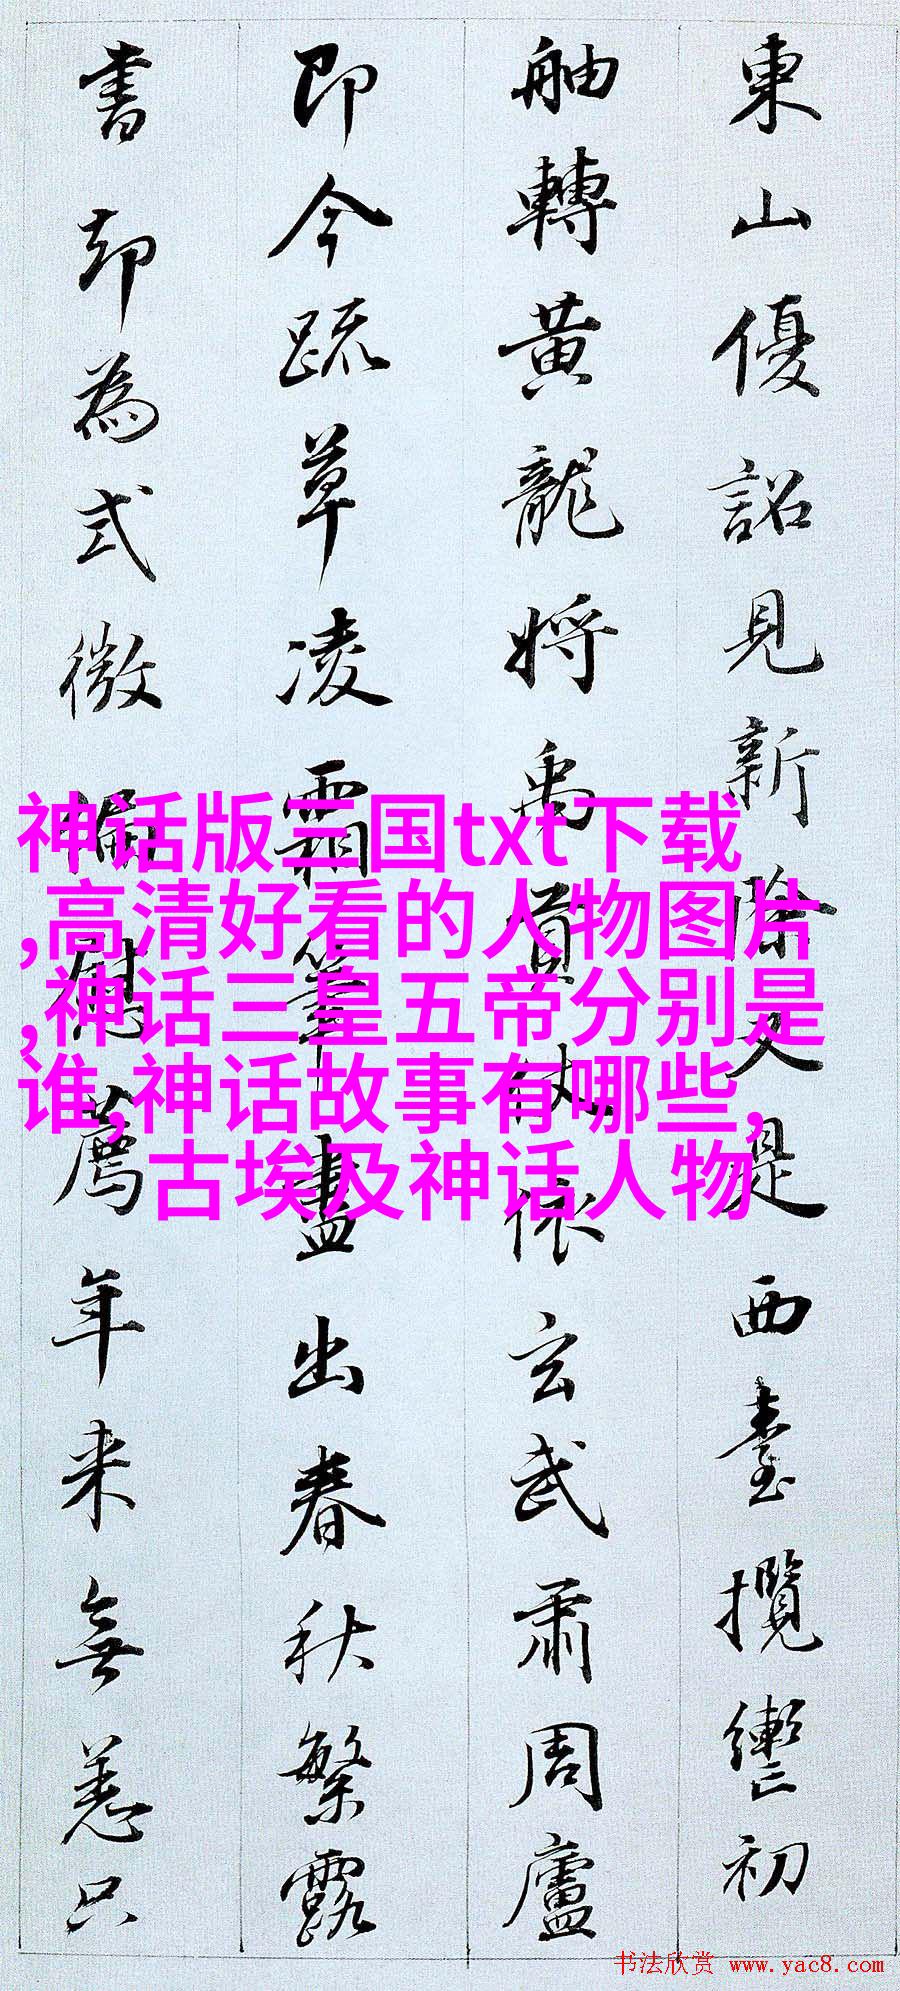 東山優詔見新除又是西臺攬轡初
舳轉黃龍將禹貢仗依玄武肅周廬
即今疏草凌霜筆盡出春秋繁露
書却為式微偏慰薦年来無恙只
神话版三国txt下载
,高清好看的人物图片
,神话三皇五帝分别是
谁,神话故事有哪些,
古埃及神话人物
书法欣赏 www.yac8.com